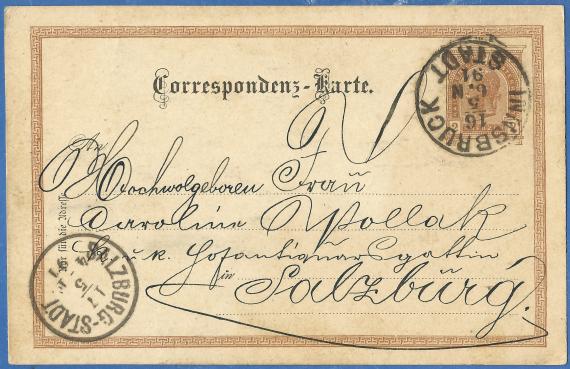 Correspondenz-Karte.
INNSBRUCK
STADT
16
5
6.N
91
An
Hochwolgeboren Frau
Caroline Wollak
k. u. k. Hofantiquarsgattin
in
Salzburg.
Nur für die Adresse
SALZBURG-STADT
17
5